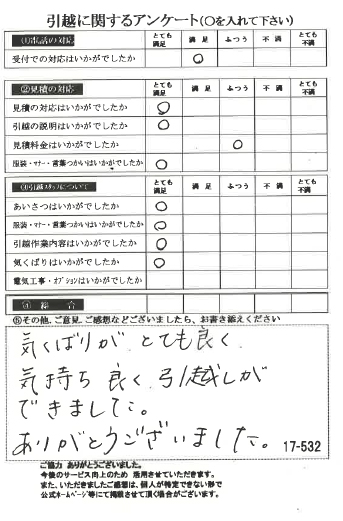 引越に関するアンケート(○を入れて下さい)
①電話の対応 とても満足 満足 ふつう 不満 とても不満
受付での対応はいかがでしたか ○
②見積の対応 とても満足 満足 ふつう 不満 とても不満
見積の対応はいかがでしたか ○
引越の説明はいかがでしたか ○
見積料金はいかがでしたか ○
服装・マナー・言葉つかいはいかがでしたか ○
③引越スタッフについて とても満足 満足 ふつう 不満 とても不満
あいさつはいかがでしたか ○
服装・マナー・言葉つかいはいかがでしたか ○
引越作業内容はいかがでしたか ○
気くばりはいかがでしたか ○
電気工事・オプションはいかがでしたか
④総合
⑤その他、ご意見、ご感想などございましたら、お書き添えください
気くばりが とても良く
気持ち 良く 引越しが
できました。
ありがとうございました。
17-532
ご協力 ありがとうございました。
今後のサービス向上のため 活用させていただきます。
また、いただきましたご感想は、個人が特定できない形で
公式ホームページ等にて掲載させて頂く場合がございます。